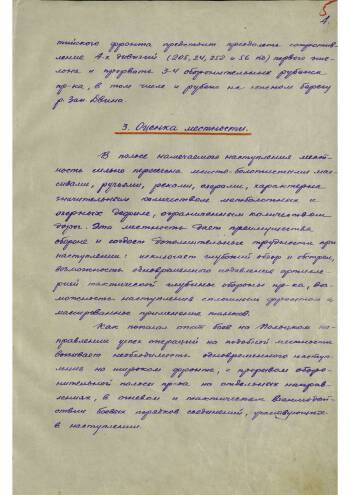 5
4.
тийского фронта предстоит преодолеть сопротив-
ление 4-х дивизий (205, 24, 252 и 56 пд) первого эше-
лона и прорвать 3-4 оборонительные рубежа
пр-ка, в том числе и рубеж на южном берегу
р. Зап. Двина.
3. Оценка местности.
В полосе намечаемого наступления мест-
ность сильно пересечена лесисто-болотистыми мас-
сивами, ручьями, реками, озерами, характерна
значительным количеством межболотных и
озерных дефиле, ограниченным количеством
дорог. Эта местность дает преимущества
обороне и создает дополнительные трудности при
наступлении: исключает глубокий обзор и обстрел,
возможность одновременного подавления артилле-
рией тактической глубины обороны пр-ка, воз-
можность наступления сплошным фронтом и
массированное применение танков.
Как показал опыт боев на Полоцком на-
правлении успех операций на подобной местности
вызывает необходимость одновременного наступ-
ления на широком фронте, с прорывом оборо-
нительной полосы пр-ка на отдельных направ-
лениях, в огневом и тактическом взаимодей-
ствие боевых порядков соединений, участвующих
в наступлении.